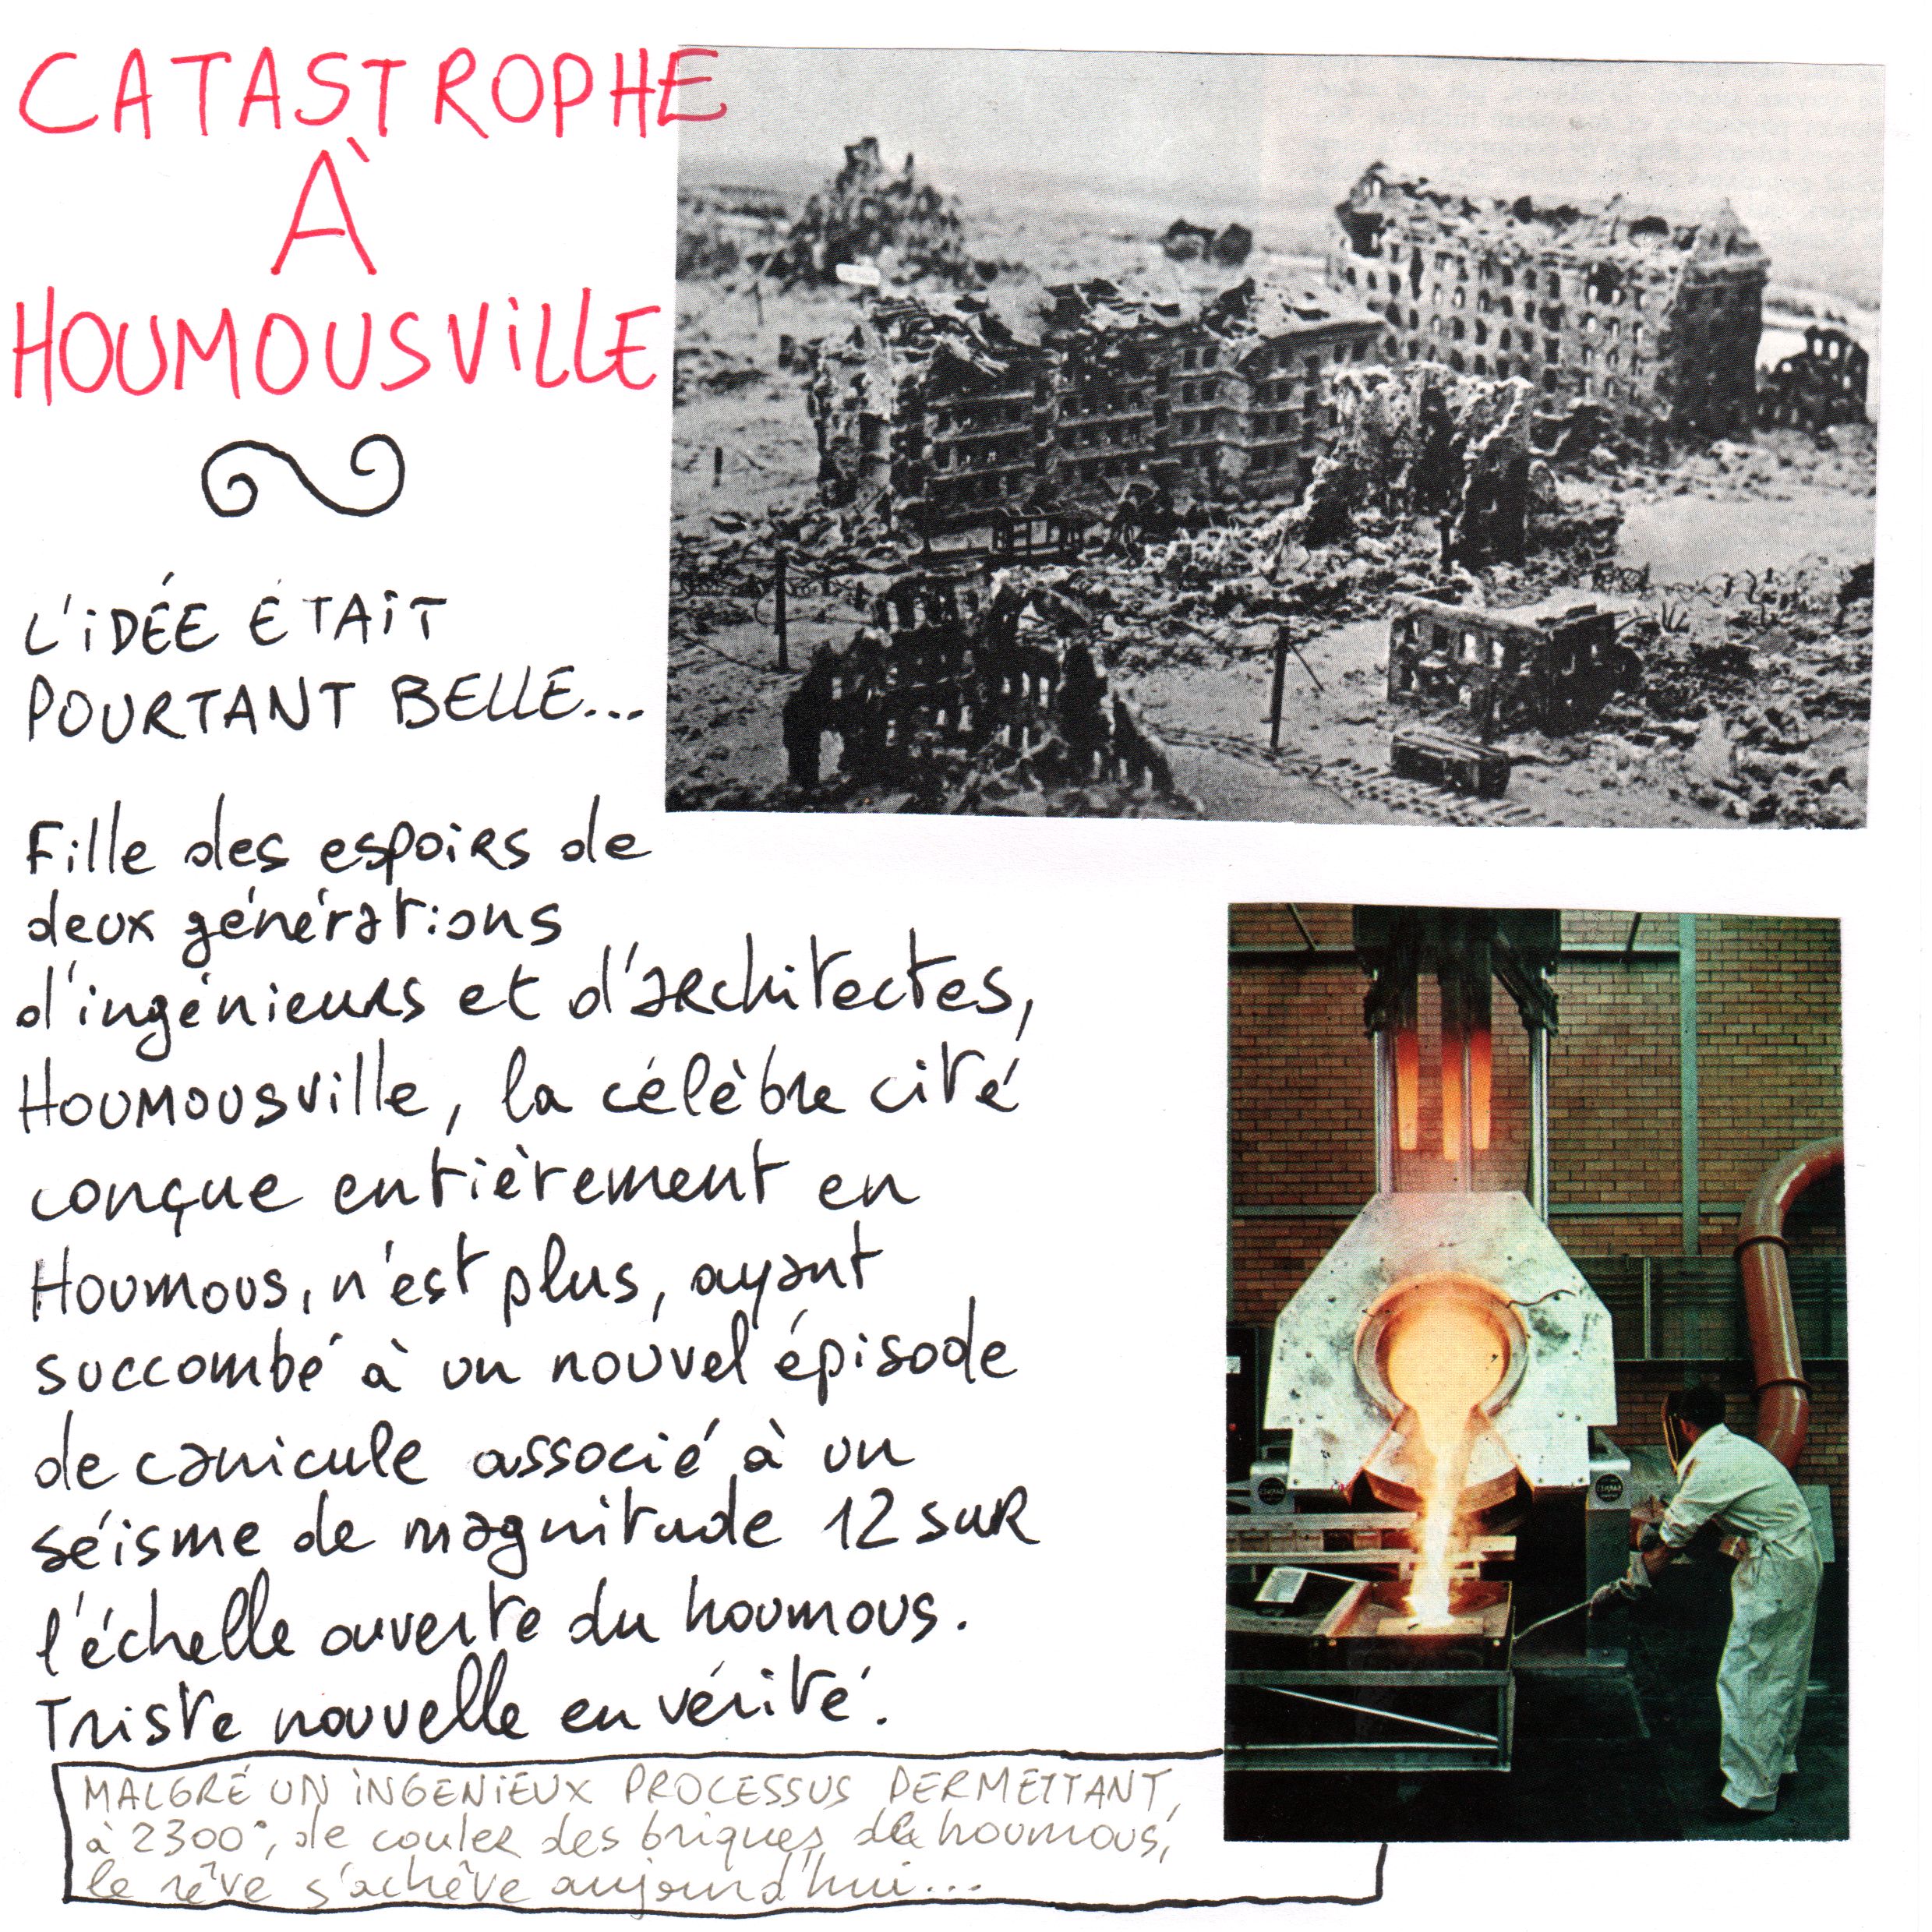 CATASTROPHE
À
HOUMOUSViLLE
L'iDÉE ÉTAiT
POURTANT BELLE...
Fille des espoirs de
deux générations
d'ingénieurs et d'architectes,
Houmousville, la célèbre cité
conçue entièrement en
Houmous, n'est plus, ayant
succombé à un nouvel épisode
de canicule associé à un
séisme de magnitude 12 sur
l'échelle ouverte du houmous.
Triste nouvelle en vérité.
MALGRÉ UN iNGENiEUX PROCESSUS PERMETTANT,
à 2300°, de couler des briques de houmous,
le rêve s'achêve aujourd'hui...